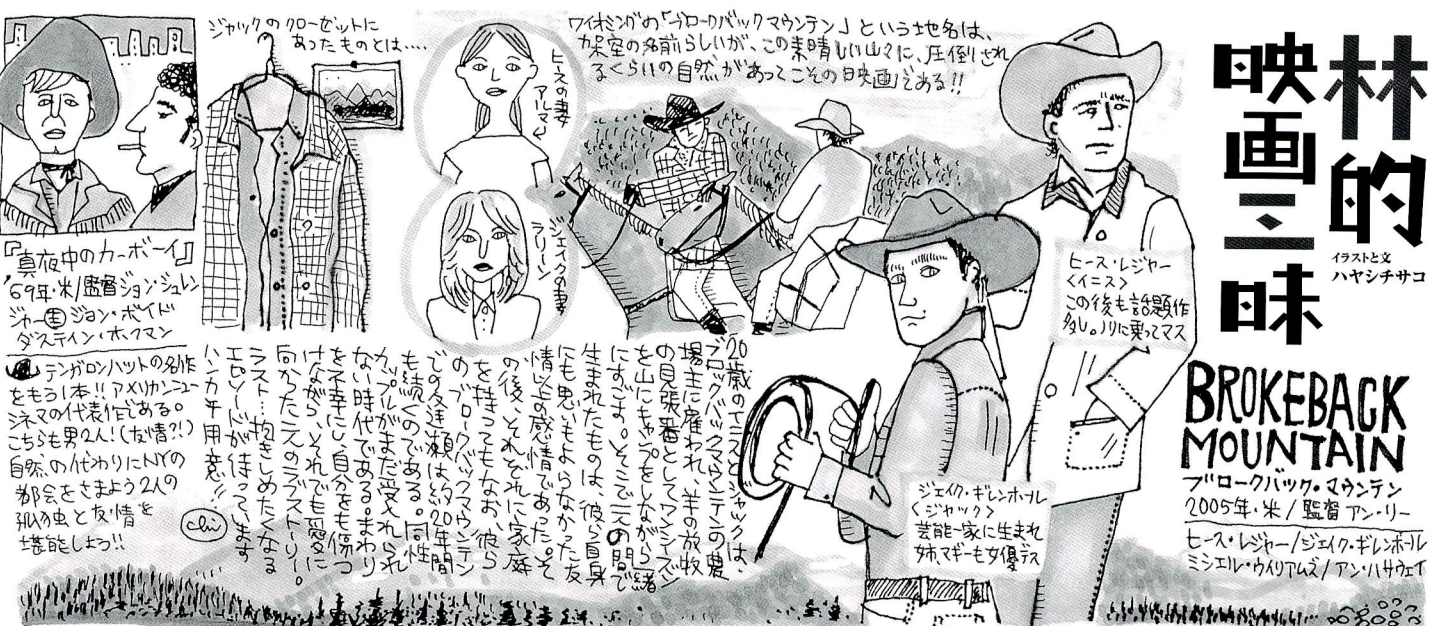 林的
映画三昧
イラストと文
ハヤシチサコ
BROKEBACK
MOUNTAIN
ブロークバック・マウンテン
2005年・米/監督 アン・リー
ヒース・レジャー/ジェイク・ギレンホール
ミシェル・ウイリアムズ/アン・ハサウェイ
ヒース・レジャー
<イニス>
この後も話題作
多し。ノリに乗ってマス
ジェイク・ギレンホール
<ジャック>
芸能一家に生まれ
姉、マギーも女優デス
ワイオミングの「ブロークバックマウンテン」という地名は、
架空の名前らしいが、この素晴しい山々に、圧倒され
るくらいの自然があってこその映画である!!
ヒースの妻
アルマ
ジェイクの妻
ラリーン
ジャックのクローゼットに
あったものとは‥‥
20歳のイニスとジャックは、
ブロックバックマウンテンの農
場主に雇われ、羊の放牧
の見張番としてワンシーズン
を山にキャンプをしながら一緒
にすごす。そこで二人の間で
生まれたものは、彼ら自身
にも思いもよらなかった友
情以上の感情であった。そ
の後、それぞれに家庭
を持ってもなお、彼ら
のブロークバックマウンテン
での友逢瀬は約20年間
も続くのである。同性
カップルがまだ受入れられ
ない時代である。まわり
を不幸にし自分をも傷つ
けながら、それでも愛に
向かった二人のラブストーリー。
ラスト…抱きしめたくなる
エピソードが待っています
ハンカチ用意!!
chi
『真夜中のカーボーイ』
'69年・米/監督ジョン・シュレシ
ジャー 主 ジョン・ボイド
ダスティン・ホフマン
テンガロンハットの名作
をもう1本!!アメリカンニュー
シネマの代表作である。
こちらも男2人!(友情?!)
自然の代わりにNYの
都会をさまよう2人の
孤独と友情を
堪能しよう!!